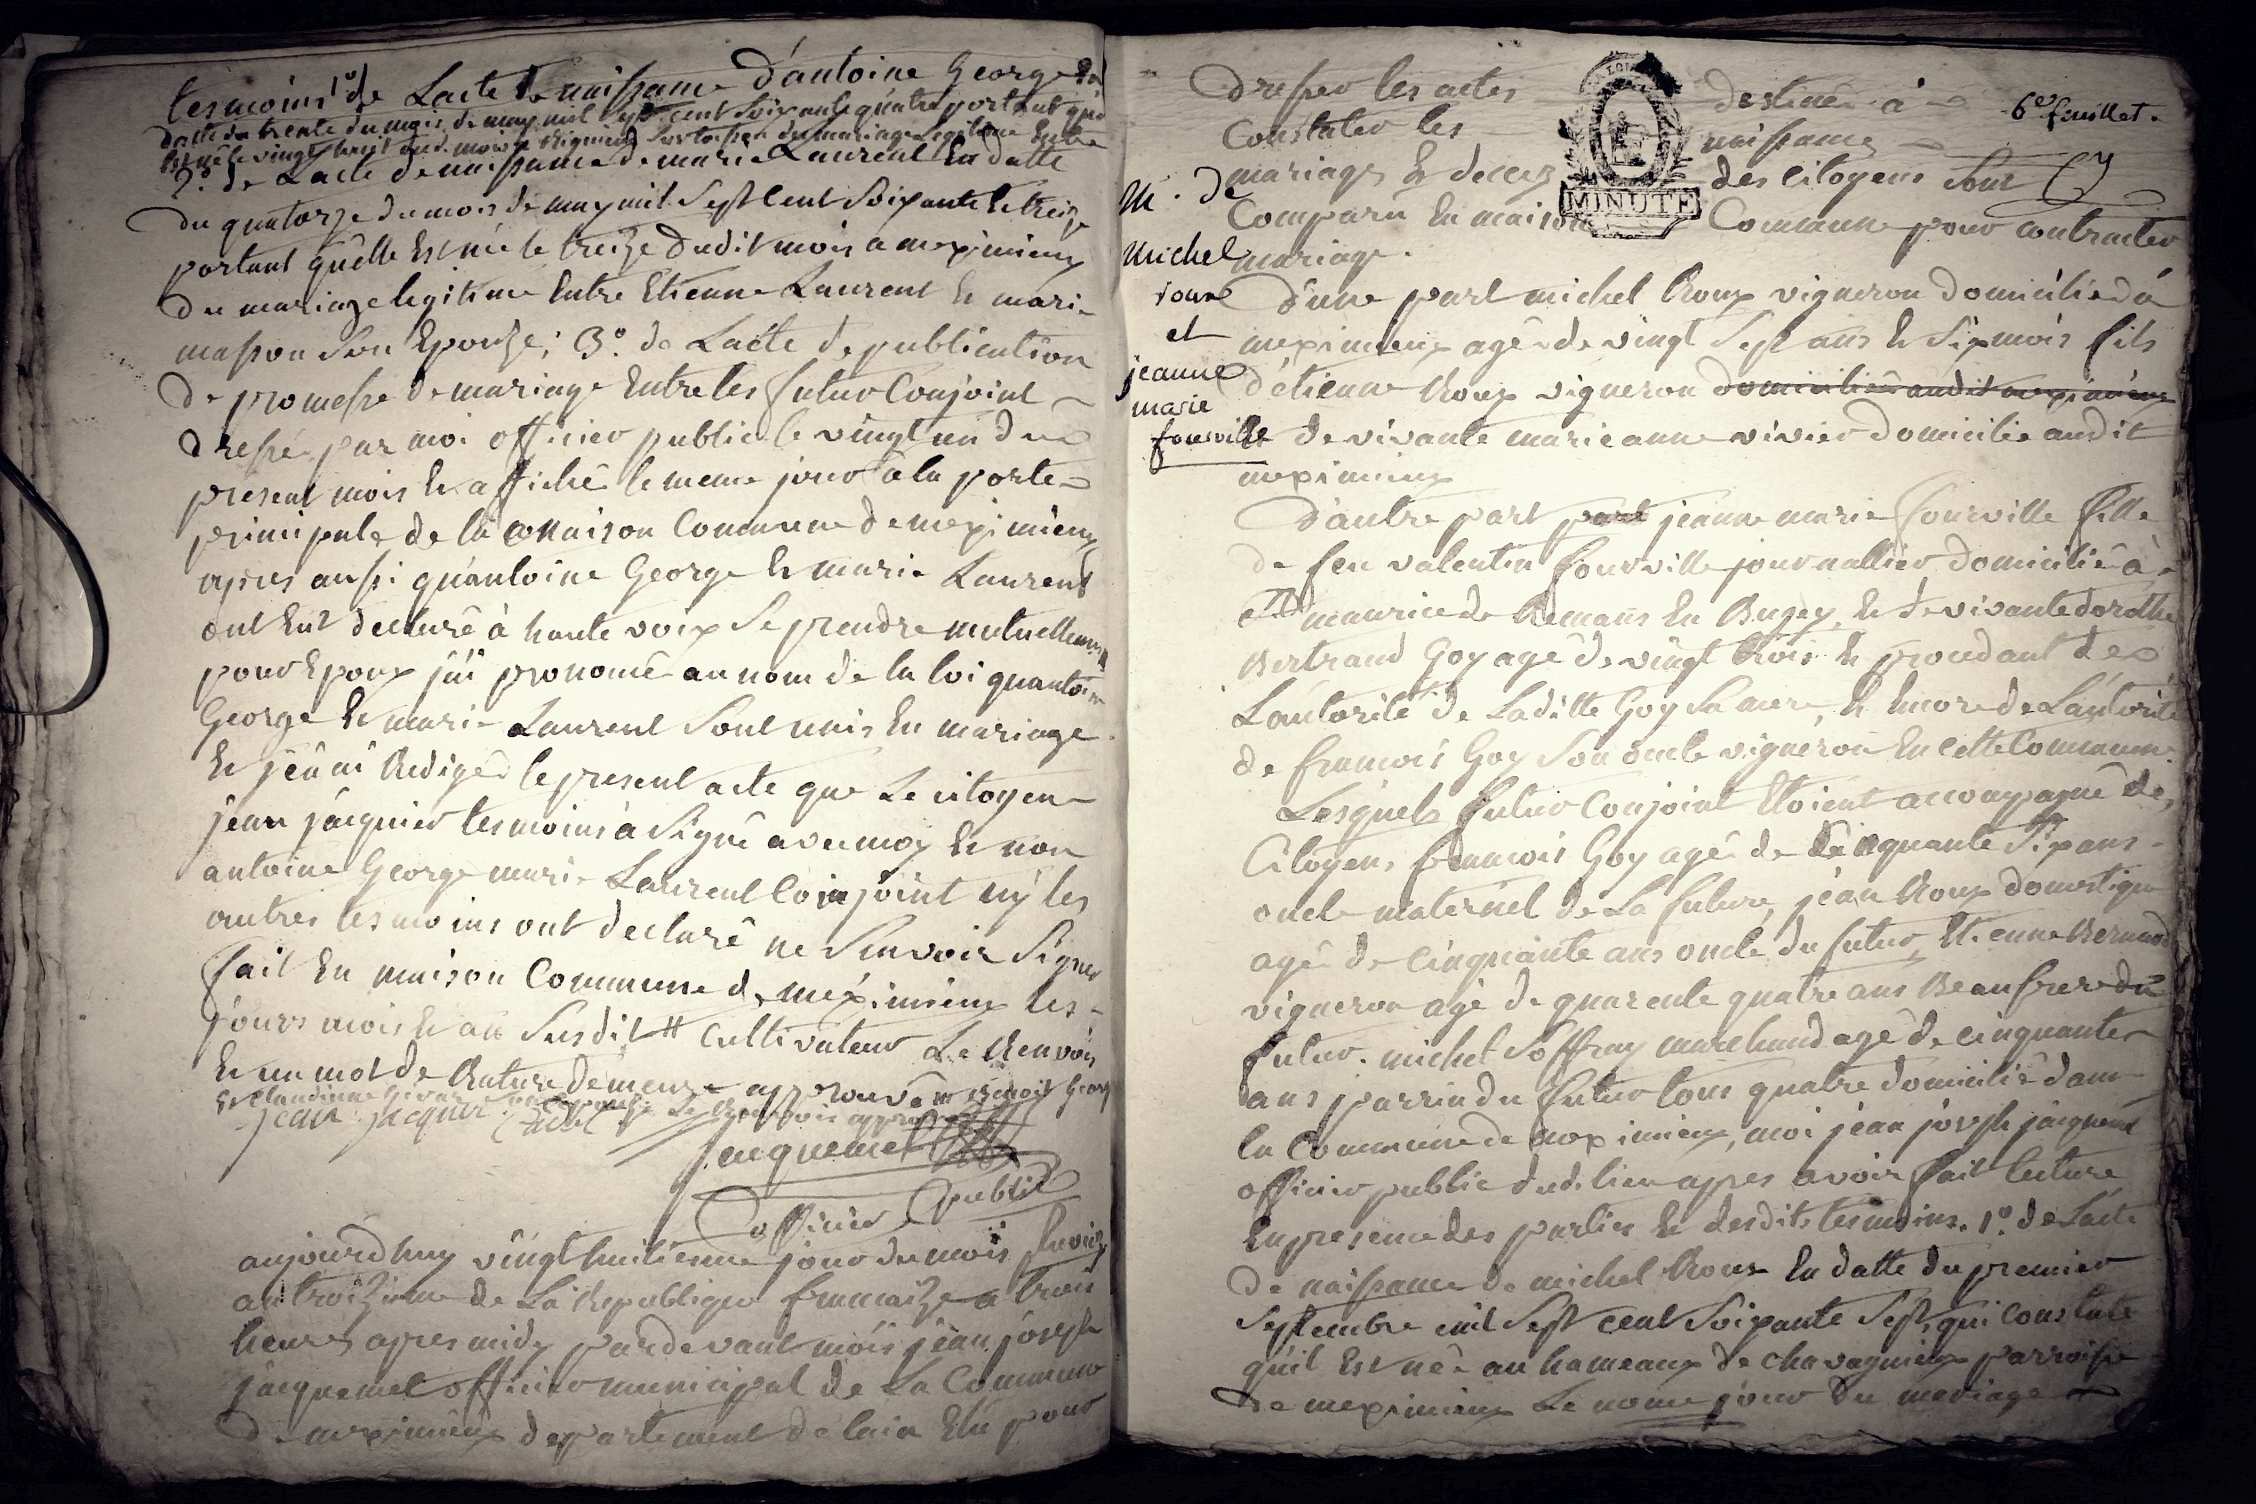 tesmoins 1º de Lacte de naissance d'antoine George en
datte du trente du mois de may mil sept cent soixante quatre portant qu'il
est né le vingt huit du mois
2º. de Lacte de naissance de marie Laurent En datte
du quatorze du mois de may mil Sept Cent Soixante et treize
portant qu'elle Est née le treize dudit mois a meximieux
du mariage legitime Entre Etienne Laurent Et marie
masson Son Epouse; 3º. de Lacte de publication
de promesse de mariage Entre les futur Conjoint
dressé par moi officier public le vingt un du
present mois Et affiché le meme jour à la porte
principale de la maison Commune de meximieux
apres aussi qu'antoine George Et marie Laurent
ont Eut declaré à haute voix Se prendre mutuellement
pour Epoux j'ai prononcé au nom de la loi quantoine
George Et marie Laurent Sont unis En mariage
Et j'en ai Redigé le present acte que Le citoyen
jean jacquier tesmoins à Signé avec moy Et non
antoine George marie Laurent Conjoint ny les
autres tesmoins ont declaré ne Scavoir Signer
fait En maison Commune de meximieux les
jours mois Et an Susdit # Cultivateur Le Renvois
Et un mot de Rature demeure approuvé # Benoit George
Et Claudine Le Renvois approuvé
jean jacquier
jacquemet
officier public
aujourdhuy vingt huitieme jour du mois fevrier
an troizieme de La Republique francaize a trois
heures apres midy pardevant mois jean joseph
jacquemet officier municipal de La Commune
de meximieux departement de lain Elu pour
6e feuillet.
dresser les actes destiné à
Constater les naissances
mariages Et decez des Citoyens Sont
Comparu En maison Commune pour contracter
mariage.
MINUTE
M. de
Michel
roux
et
jeanne
marie
fourville
D'une part michel Roux vigneron domicilié à
meximieux agé de vingt Sept ans Et Six mois fils
d'étienne Roux vigneron domicilié audit meximieux
Et de vivante marie anne vivier domicilié audit
meximieux
D'autre part part jeanne marie fourville fille
de feu valentin fourville journallier domicilié à
St maurice de Remans En Bugey, Et de vivante dorothé
Bertrand Goy agé de vingt trois Et procedant de
Lautorité de Laditte Goy Sa mere, Et Encore de Lautorité
de francois Goy Son oncle vigneron En Cette Commune
Lesquels futur Conjoint Etoient accompagné des
Citoyens francois Goy agé de Cinquante Six ans
oncle maternel de La future, jean Roux domestique
agé de Cinquante ans oncle du futur, Etienne Bernard
vigneron agé de quarente quatre ans Beaufrere du
futur. michel Soffray marchand agé de cinquante
ans parrin du futur tous quatre domicilié dans
la Commune de meximieux, moi jean joseph jacquemet
officier public dud. lieu apres avoir fait lecture
En presence des parties Et desdits tesmoins. 1º. de Lacte
de naissance de michel Roux En datte du premier
Septembre mil Sept cent Soixante Sept, qui constate
qu'il Est né au hameaux de chavagnieux parroisse
de meximieux Le meme jour du mariage